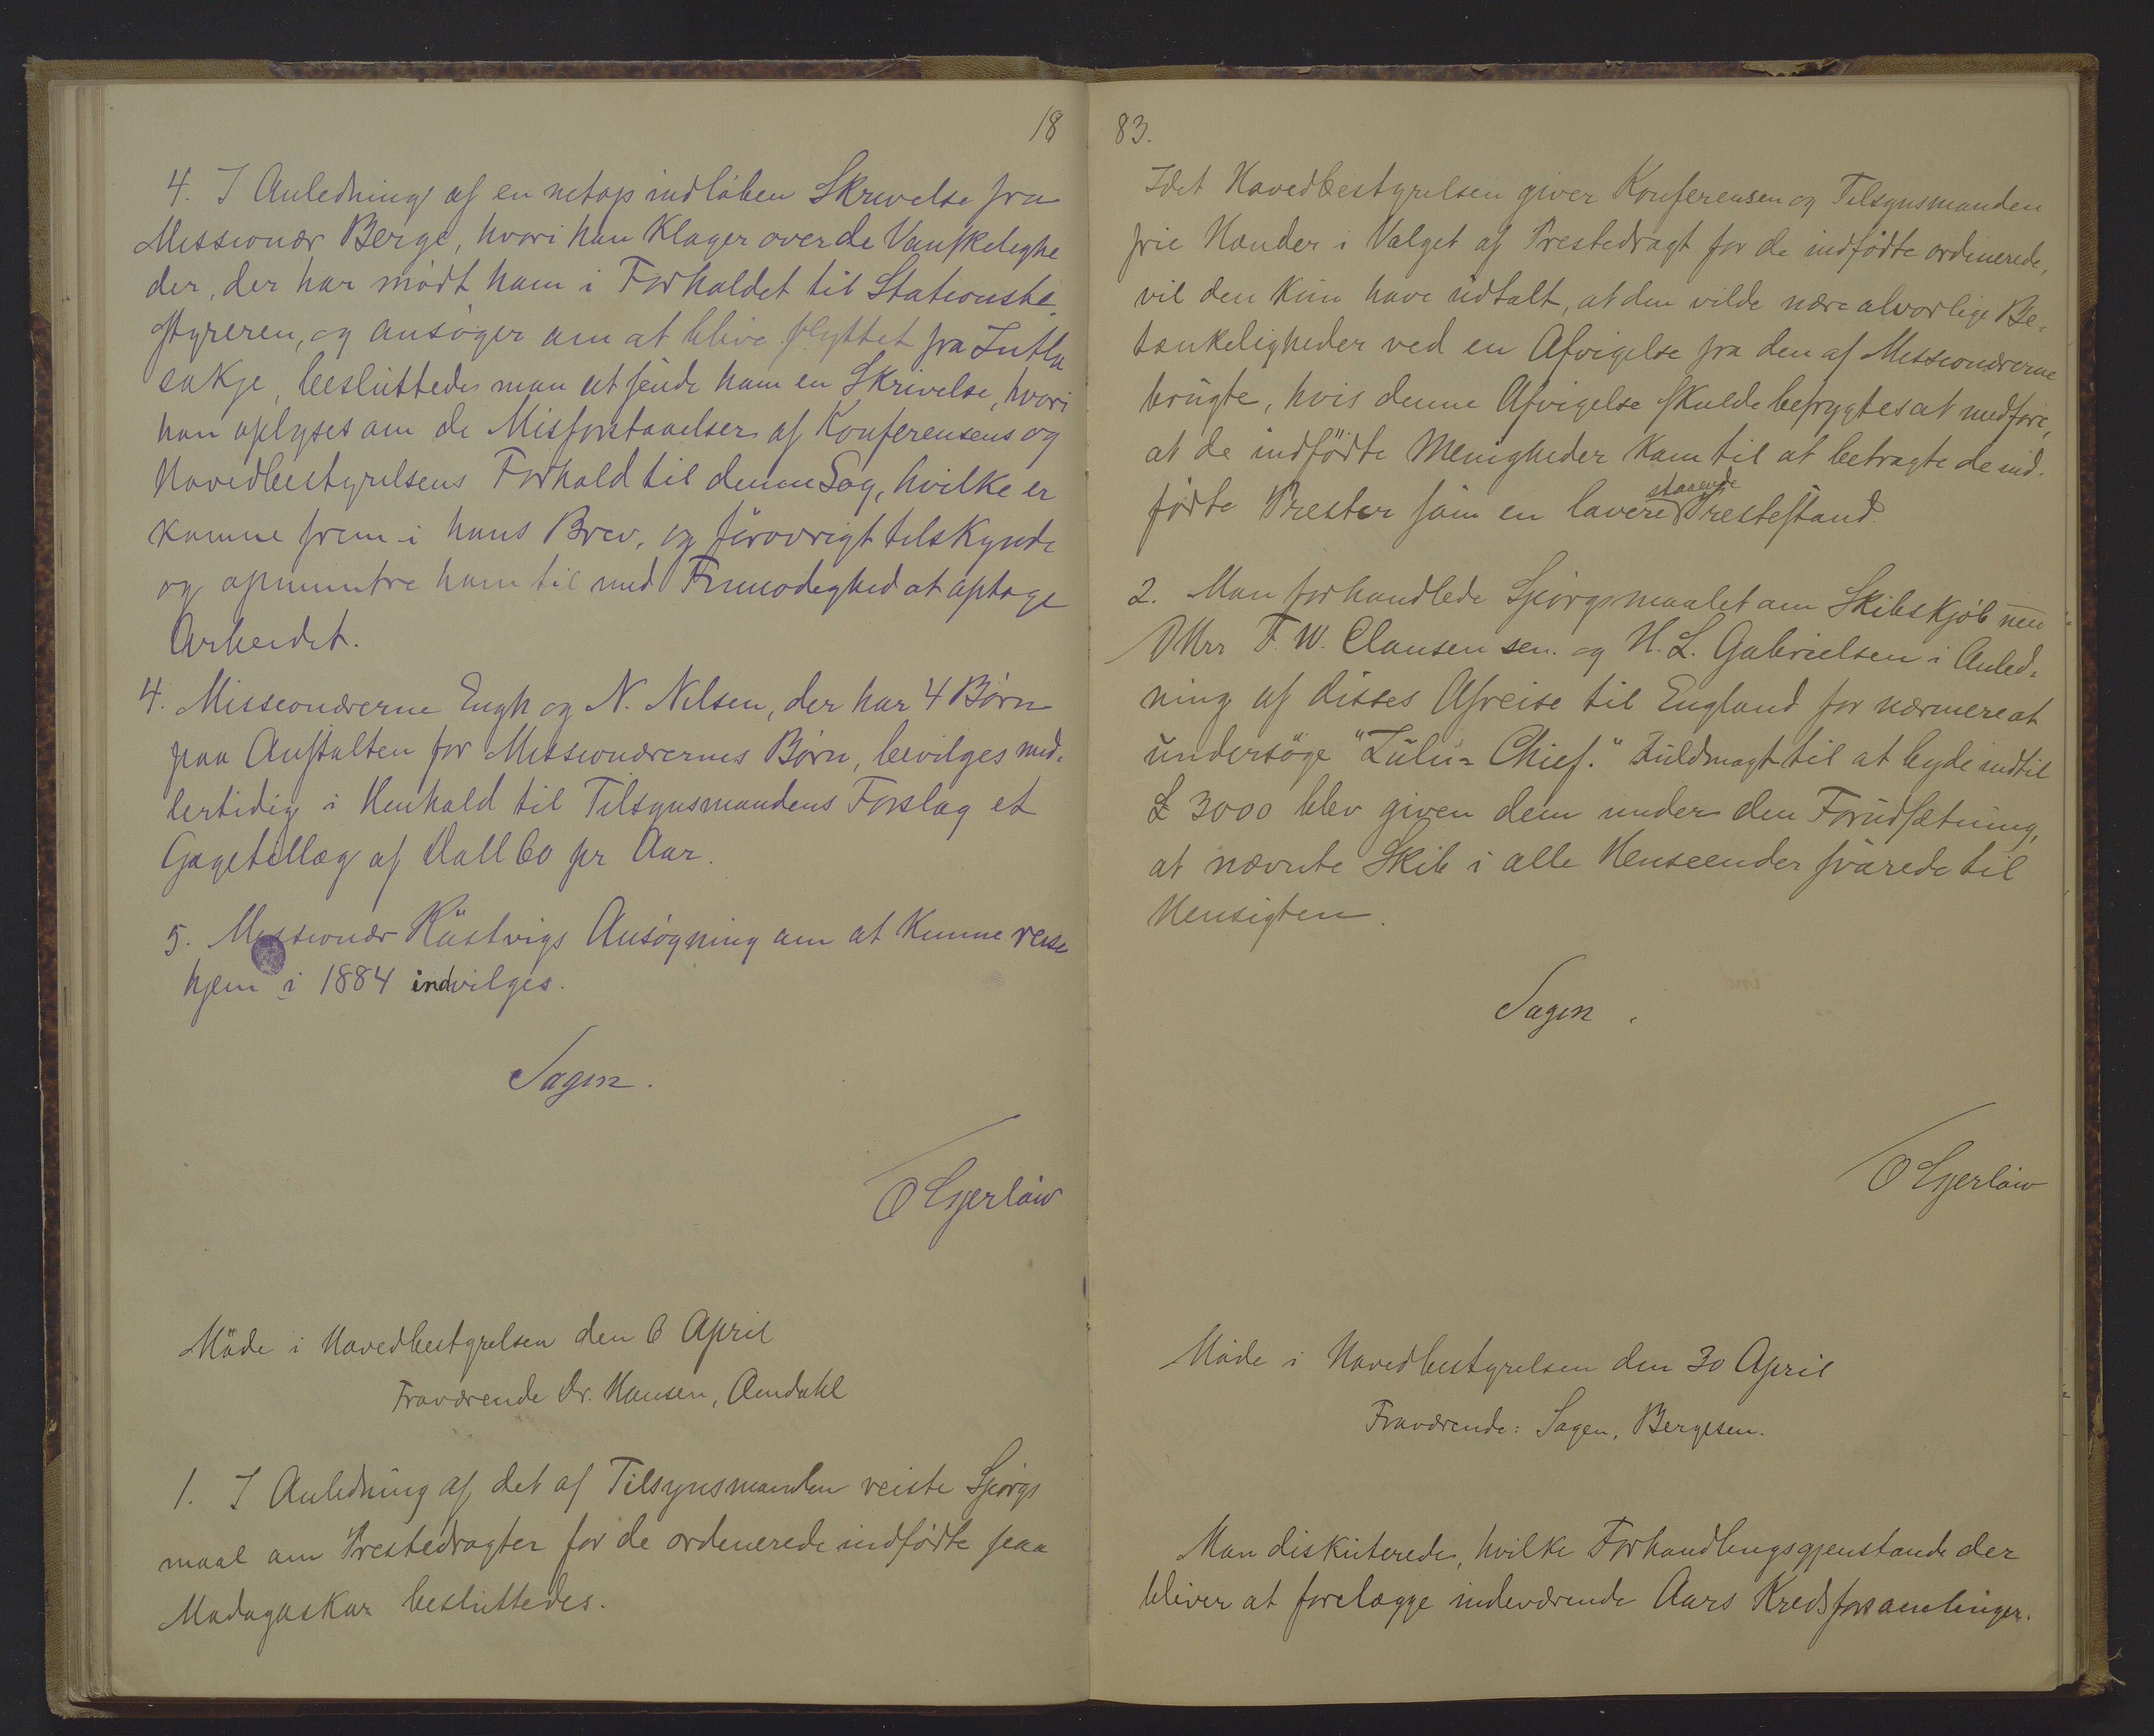 18
4. I Anledning af en netop indløben Skrivelse fra
Missionær Berge, hvori han klager over de Vanskelighe
der, der har mødt ham i Forholdet til Stationsbe
styreren, og ansøger om at blive flyttet fra Intla
sakje, besluttedes man at sende ham en Skrivelse, hvori
han oplyses om de Misforstaaelser af Konferensens og
Hovedbestyrelsens Forhold til denne Sag, hvilke er
komne frem i hans Brev, og forøvrigt tilskynde
og opmuntre ham til med Frimodighed at optage
Arbeidet.
4. Missionærerne Engh og N. Nilsen, der har 4 Børn
paa Anstalten for Missionærernes Børn, bevilges mid-
lertidig i Henhold til Tilsynsmandens Forslag et
Gagetillæg af Doll 60 pr Aar.
5. Missionær Røstvigs Ansøgning om at kunne reise
hjem i 1884 indvilges.
Sagen.
O Gjerløw
Møde i Hovedbestyrelsen den 6 April
Fraværende Dr. Hansen, Omdahl
1. I Anledning af det af Tilsynsmanden reiste Spørgs
maal om Prestedragter for de ordenerede indfødte paa
Madagaskar besluttedes.
83.
Idet Hovedbestyrelsen giver Konferensen og Tilsynsmanden
frie Hænder i Valget af Prestedragt for de indfødte ordenerede,
vil den kun have udtalt, at den vilde nære alvorlige Be-
tænkeligheder ved en Afvigelse fra den af Missionærerne
brugte, hvis denne Afvigelse skulde befrygtes at medføre,
at de indfødte Menigheder kom til at betragte de ind-
fødte Prester som en lavere staaende Prestestand
2. Man forhandlede Spørgsmaalet om Skibskjøb
DHrr F. W. Clausen sen. og H. L. Gabrielsen i Anled-
ning af disses Afreise til England for nærmere at
undersøge "Zulu-Chief." Fuldmagt til at byde indtil
£ 3000 blev given dem under den Forudsætning,
at nævnte Skib i alle Henseender svarede til
Hensigten.
Sagen.
O Gjerløw
Møde i Hovedbestyrelsen den 30 April
Fraværende: Sagen, Bergesen.
Man diskuterede, hvilke Forhandlingsgjenstande der
bliver at forelægge indeværende Aars Kredsforsamlinger.